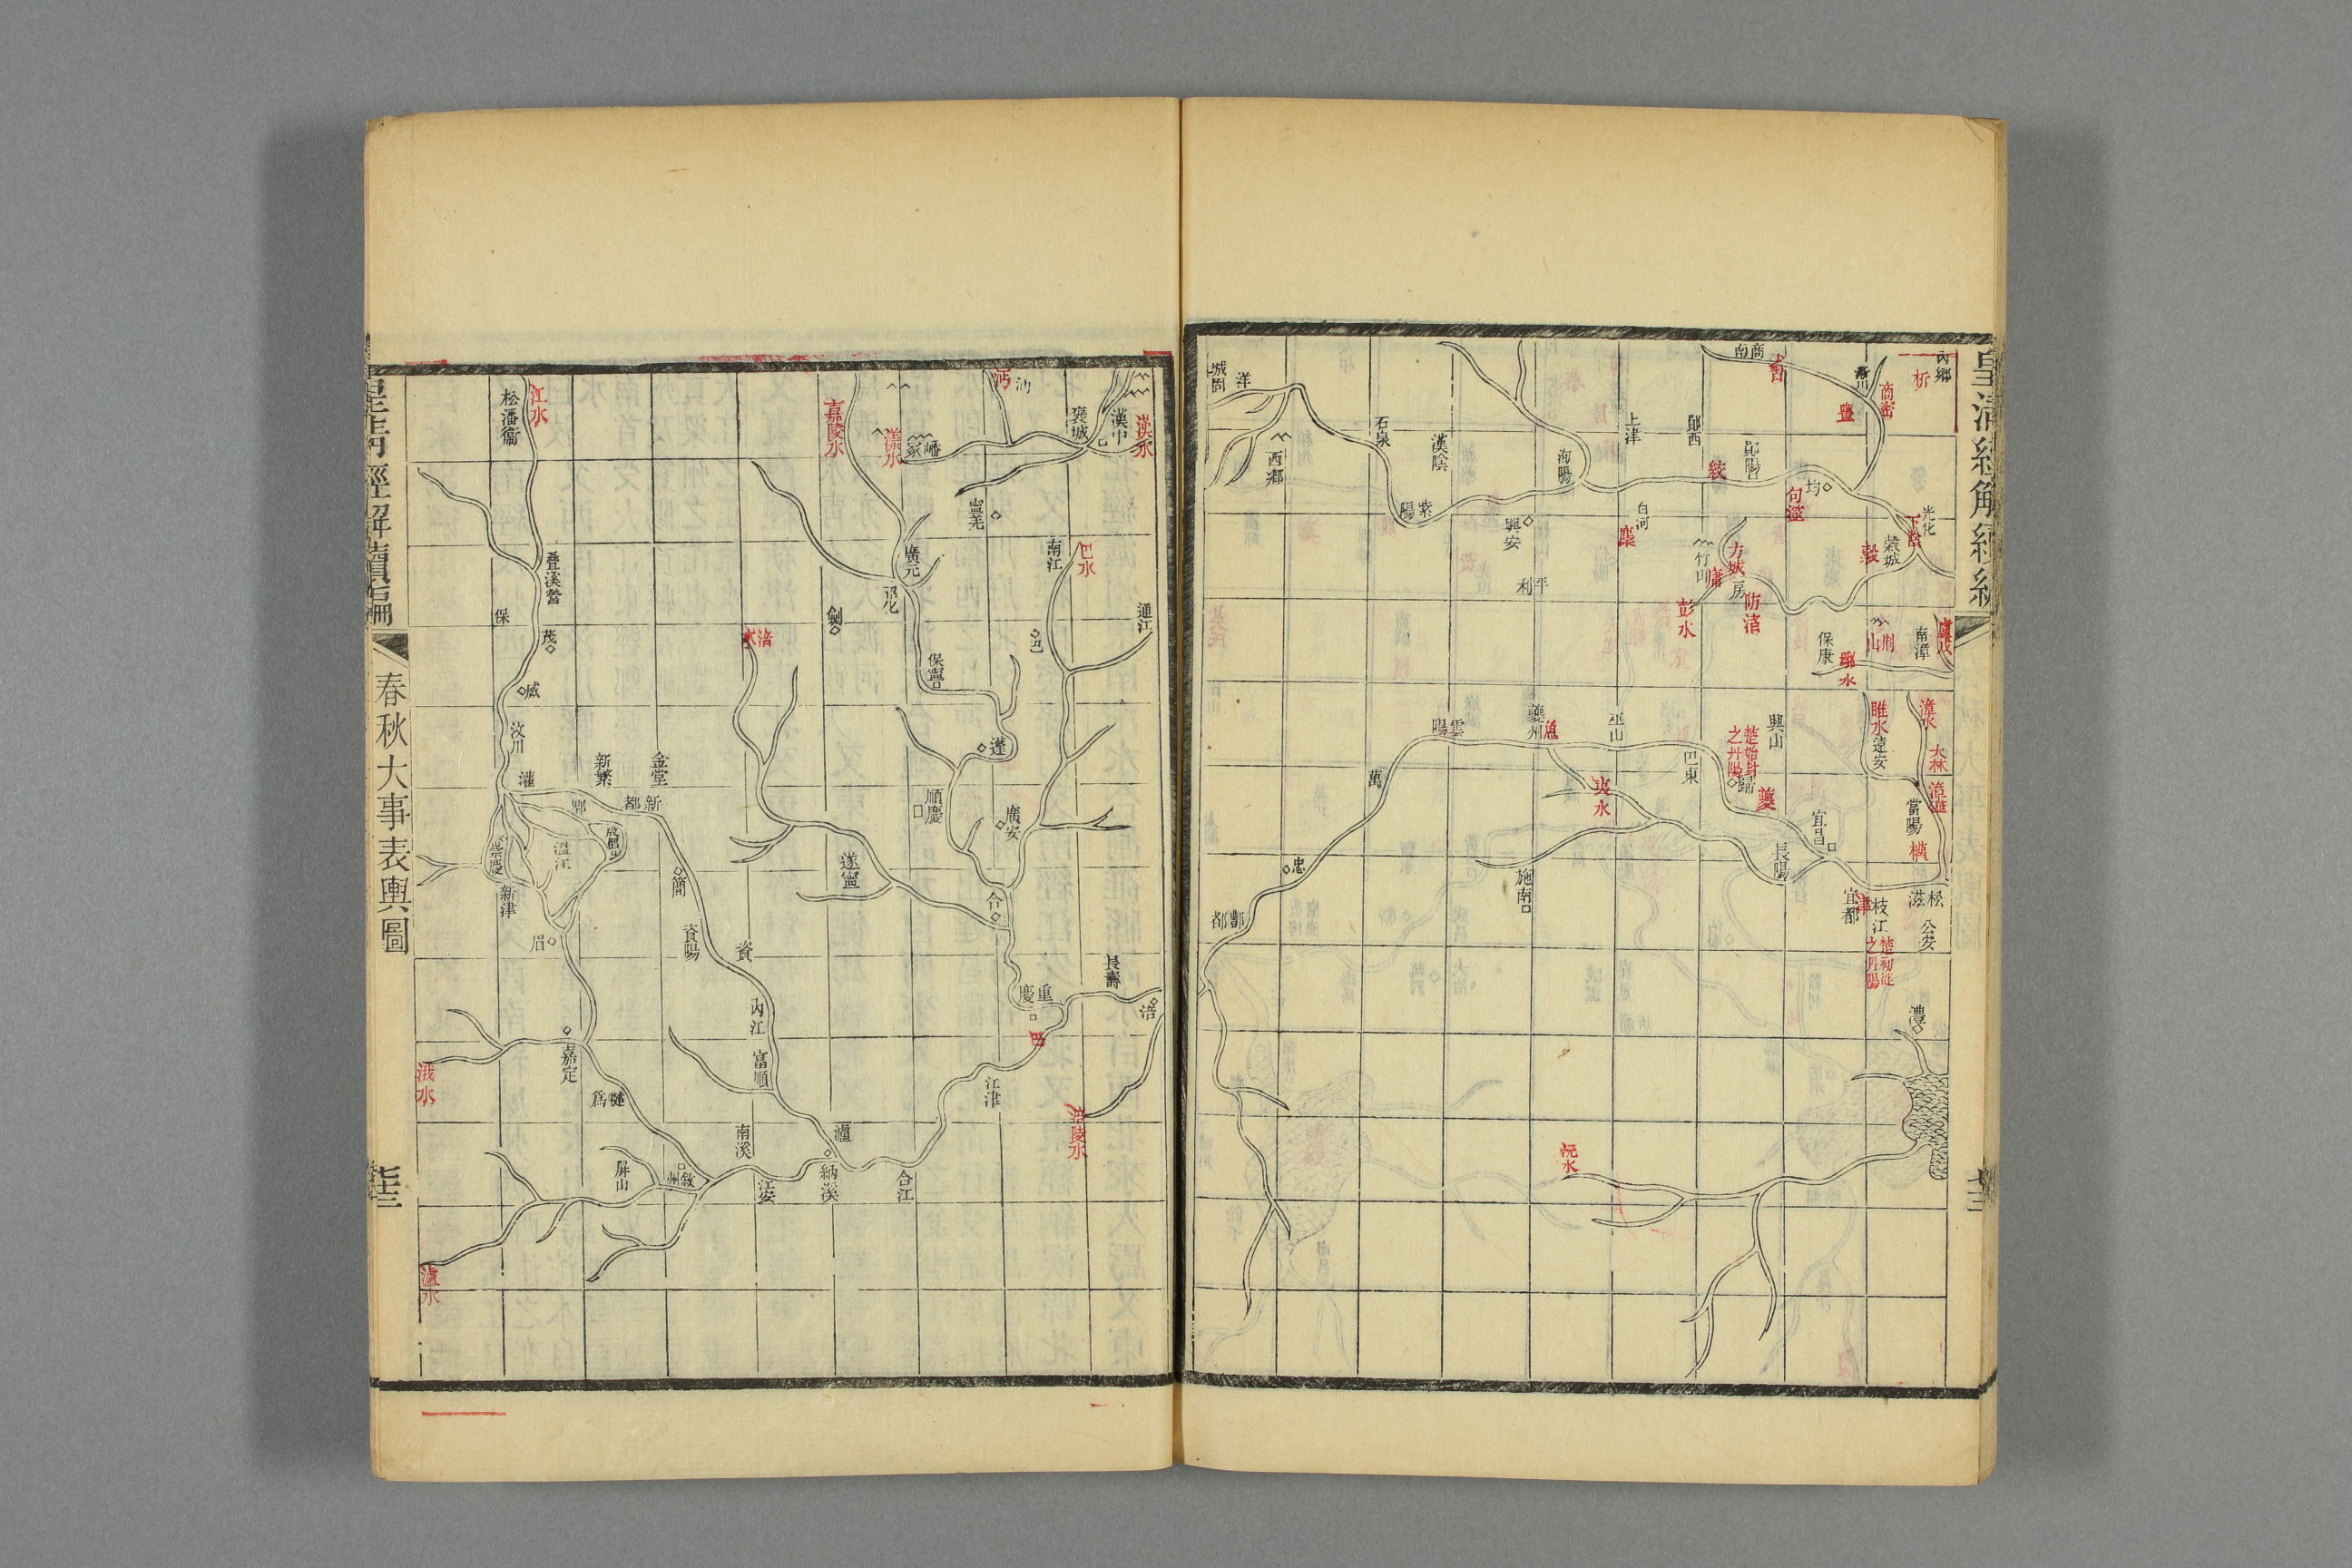 內鄉
析
商密
淅川
豐
商南
鄖陽
鄖西
上津
絞
均
句澨
光化
下陰
穀城
穀
白河
麇
洵陽
興安
漢陰
石泉
紫陽
洋
城固
西鄉
平利
竹山
方城
庸
房
防渚
彭水
保康
荊山
南漳
盧戎
鄢水
漳水
睢水
遠安
大林
漳澨
當陽
興山
楚始封之丹陽
歸
夔
巴東
巫山
夔州
魚
雲陽
萬
夷水
忠
酆都
施南
宜昌
長陽
宜都
津
枝江
松滋
公安
楚初徙之丹陽
澧
沅水
漢水
漢中
褒城
沔
沔
嶓冢
漾水
嘉陵水
江水
松潘衞
寧羌
南江
巴水
通江
廣元
昭化
劍
巴
保寧
涪水
保
疊溪營
茂
威
汶川
灌
新繁
金堂
新都
郫
成都
溫江
崇慶
新津
簡
眉
資陽
資
內江
富順
遂寧
順慶
蓬
廣安
合
重慶
巴
長壽
涪
涪陵水
江津
嘉定
犍為
浅水
屏山
敘州
南溪
江安
瀘
納溪
合江
瀘水
春秋大事表輿圖